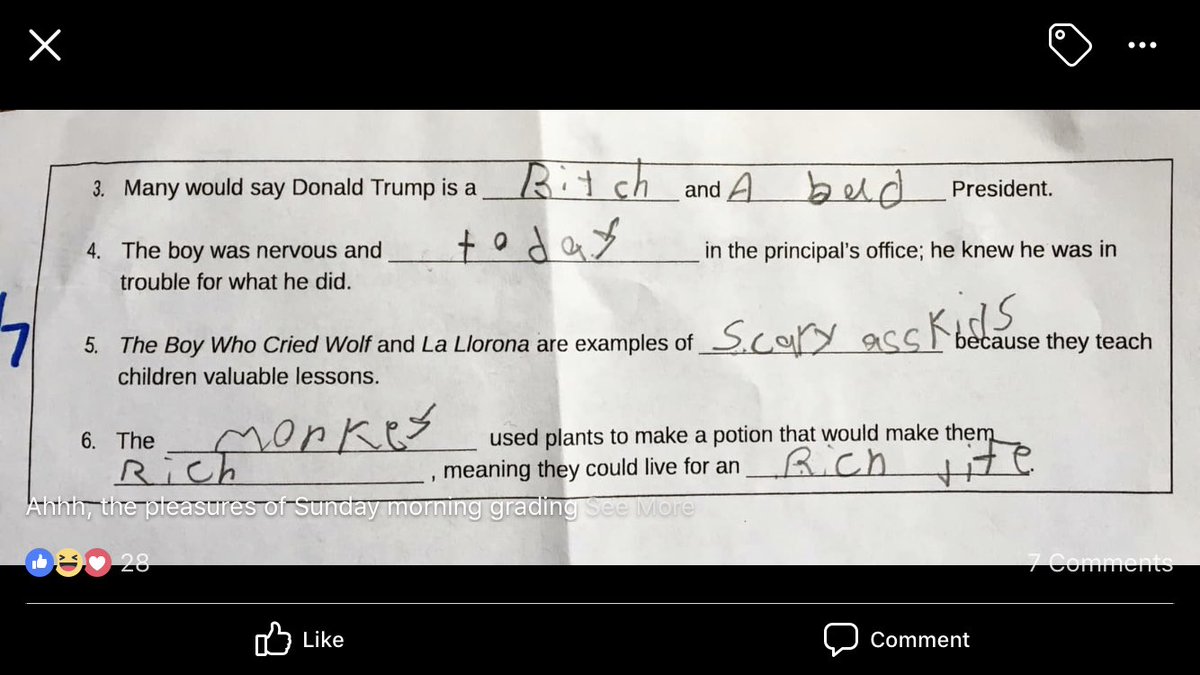 3. Many would say Donald Trump is a Bitch and A bad President.
4. The boy was nervous and today in the principal's office; he knew he was in
trouble for what he did.
5. The Boy Who Cried Wolf and La Llorona are examples of Scary ass Kids because they teach
children valuable lessons.
6. The monkey used plants to make a potion that would make them
Rich, meaning they could live for an Rich life.
Ahhh, the pleasures of Sunday morning grading See More
28 7 Comments
Like Comment